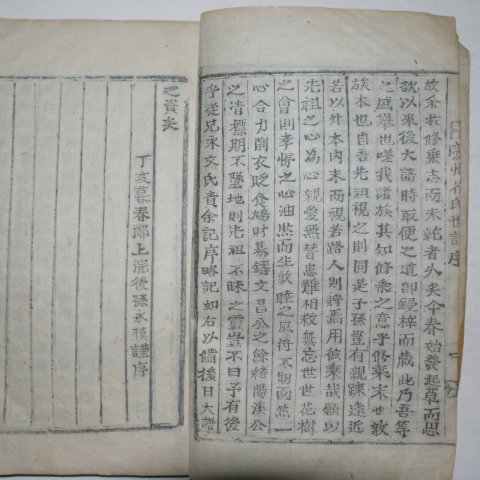 故余敢修乘志而未就者久矣今春始發起草而思
欲以來後大譜時取便之道卽綬梓而藏此乃吾等
之感舉也嗟我諸族其知修乘之意乎修乘末也敦
族本也自吾先祖視之則同是子孫豈有親踈遠近
若以外本內末而視若路人則將焉用彼乘哉願以
先祖之心為心親愛無替患難相救無忘世世花樹
之會則孝悌之心油然而生敦睦之風將不期而然一
心合力削衣貶食鳩財募鑄文昌公之餘緖陽溪公
之淸標期不墜地則先祖不昧之靈豈不曰予有後
乎從兄永文氏責余記序略記如右以備後日大譜
之資矣
丁亥暮春鄉上浣後孫永模謹序
慶州崔氏世譜序